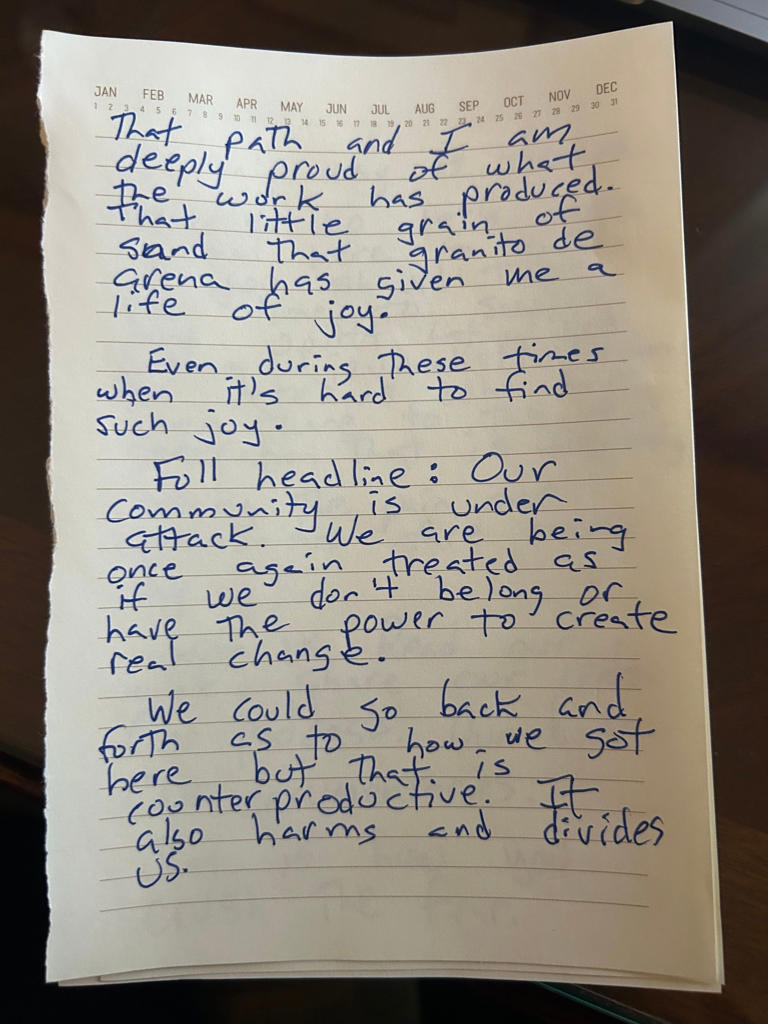 JAN FEB MAR APR MAY JUN JUL AUG SEP OCT NOV DEC
1 2 3 4 5 6 7 8 9 10 11 12 13 14 15 16 17 18 19 20 21 22 23 24 25 26 27 28 29 30 31
That path and I am
deeply proud of what
the work has produced.
That little grain of
sand that granito de
arena has given me a
life of joy.
Even during these times
when it's hard to find
such joy.
Full headline: Our
community is under
attack. We are being
once again treated as
if we don't belong or
have the power to create
real change.
We could go back and
forth as to how we got
here but that is
counter productive. It
also harms and divides
us.